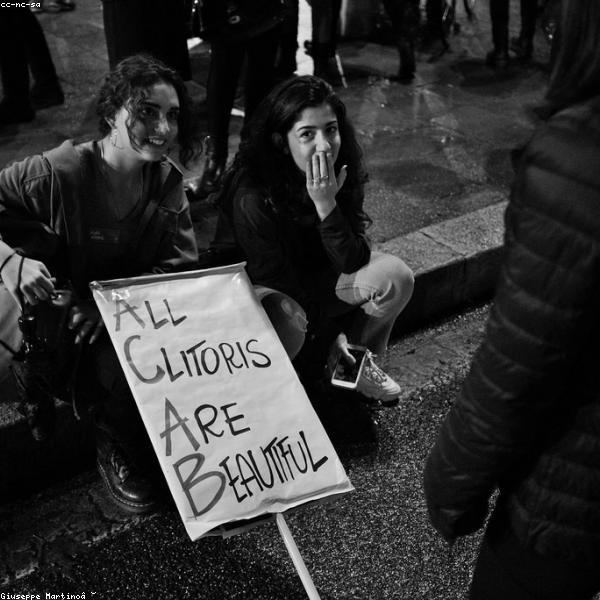 cc-nc-sa
ALL
CLITORIS
ARE
BEAUTIFUL
Giuseppe Martinoâ ˘